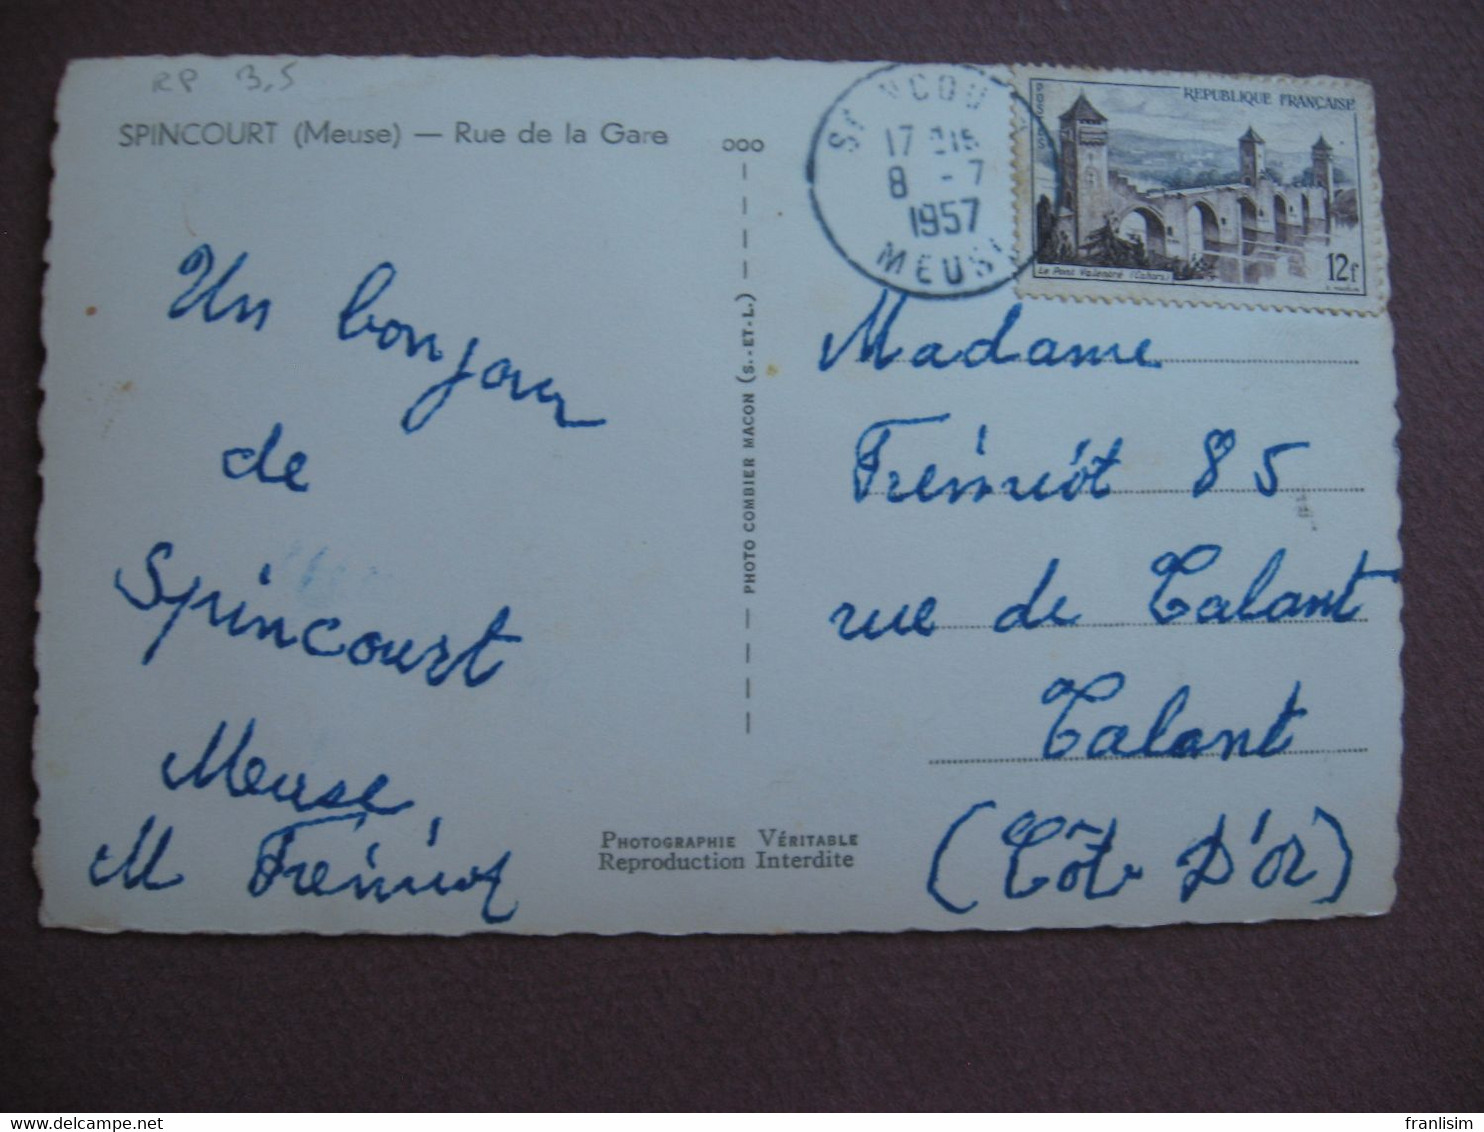 RP 3,5
SPINCOURT (Meuse) — Rue de la Gare
Un bonjour
de
Spincourt
Meuse
M Frémiot
PHOTOGRAPHIE VÉRITABLE
Reproduction Interdite
PHOTO COMBIER MACON (S.-ET-L.)
17
8 - 7
1957
MEUSE
POSTES
REPUBLIQUE FRANÇAISE
Le Pont Valentré (Cahors)
12f
Madame
Frémiot 85
rue de Talant
Talant
(Côte D'Or)
www.delcampe.net
franlisim